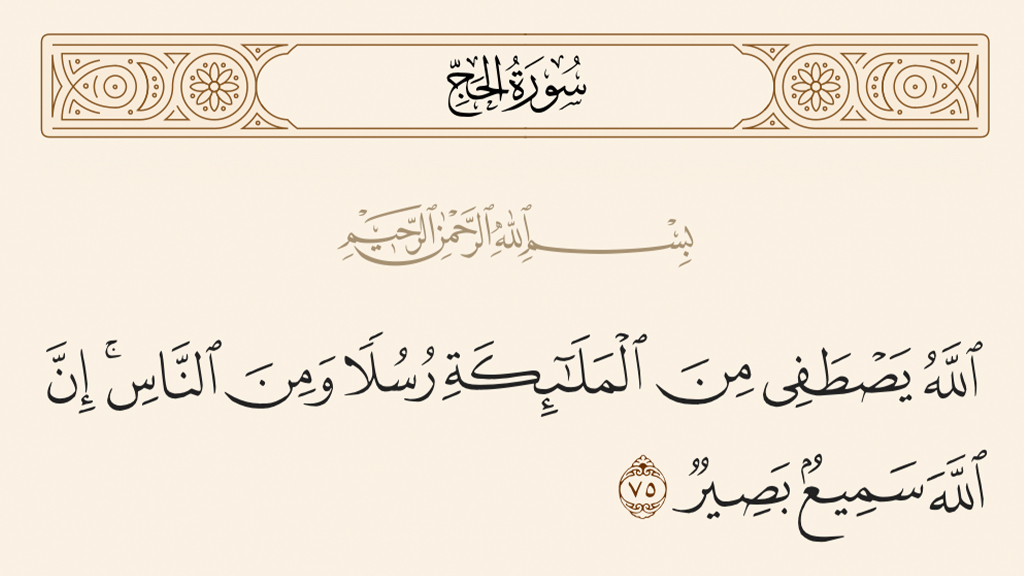 سُورَةُ الحَجِّ
بِسْمِ ٱللَّهِ ٱلرَّحْمَٰنِ ٱلرَّحِيمِ
ٱللَّهُ يَصْطَفِى مِنَ ٱلْمَلَـٰٓئِكَةِ رُسُلًا وَمِنَ ٱلنَّاسِ ۚ إِنَّ
ٱللَّهَ سَمِيعٌۢ بَصِيرٌ ٧٥